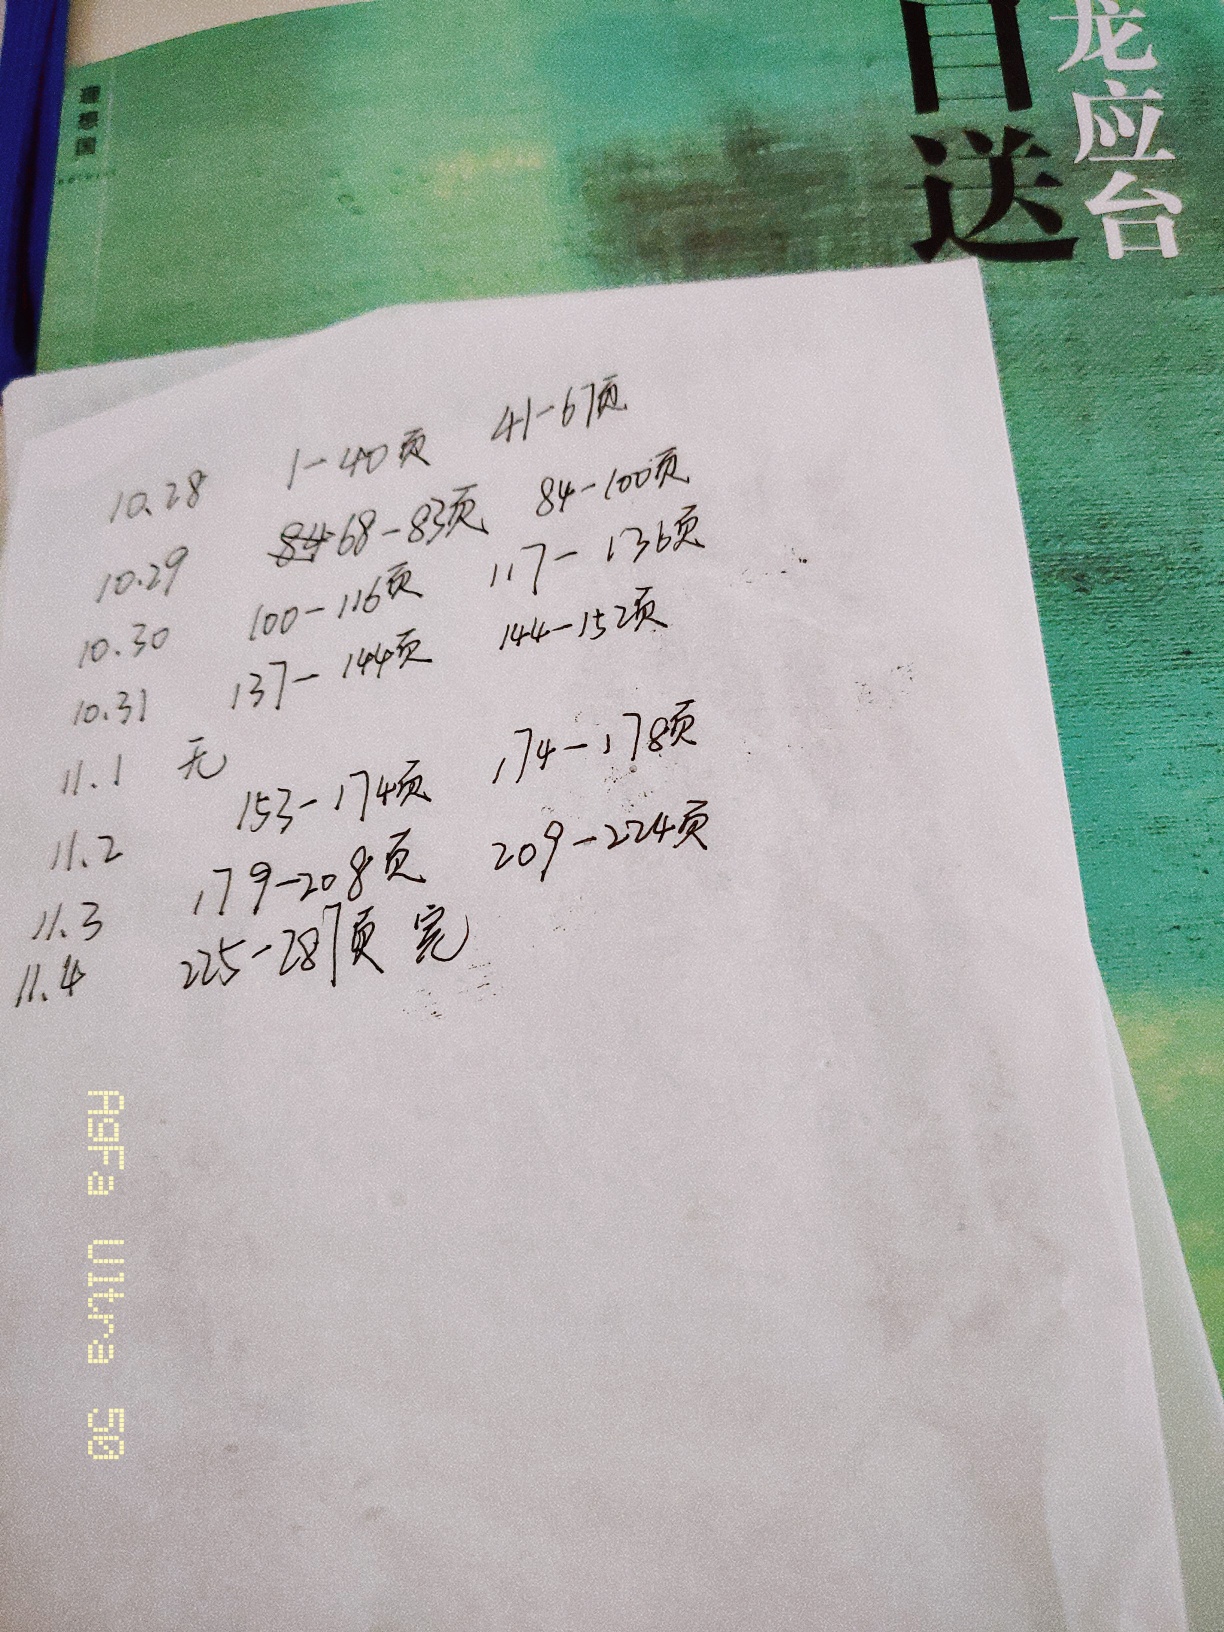 目送
龙应台
理想国
10.28 1-40页 41-67页
10.29 84 68-83页 84-100页
10.30 100-116页 117-136页
10.31 137-144页 144-152页
11.1 无
11.2 153-174页 174-178页
11.3 179-208页 209-224页
11.4 225-287页 完
Agfa Ultra 50